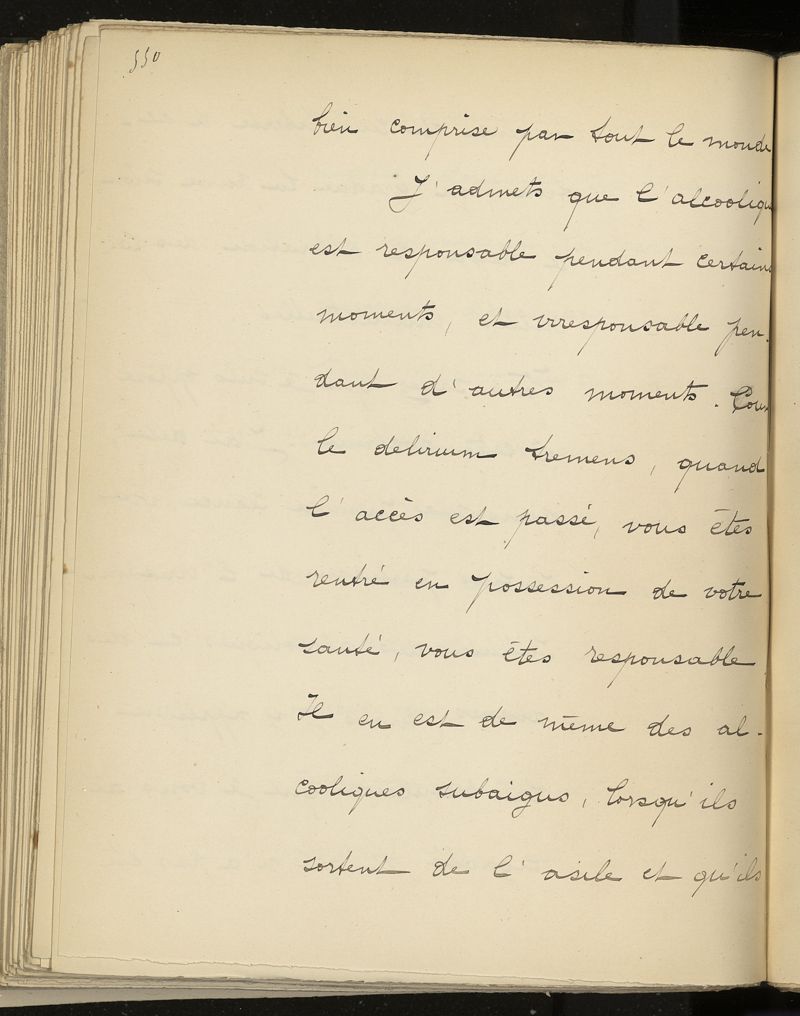 550
bien comprise par tout le monde
J'admets que l'alcooliqu
est responsable pendant certains
moments, et irresponsable pen-
dant d'autres moments. Pour
le delirium tremens, quand
l'accès est passé, vous êtes
rentré en possession de votre
santé, vous êtes responsable
Il en est de même des al-
cooliques subaigus, lorsqu'ils
sortent de l'asile et qu'ils